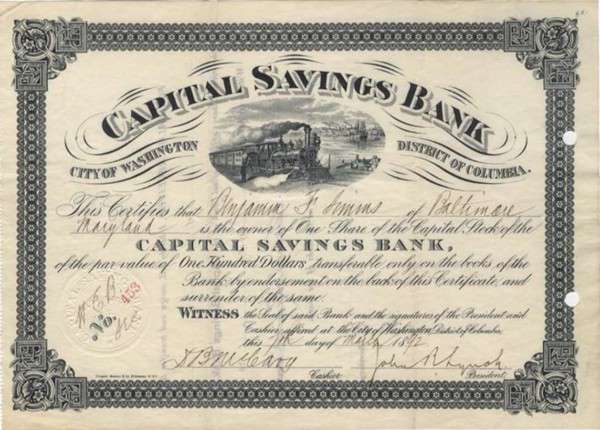 CAPITAL SAVINGS BANK
CITY OF WASHINGTON DISTRICT OF COLUMBIA.
This Certifies that Benjamin F. Simms of Baltimore
Maryland is the owner of One Share of the Capital Stock of the
CAPITAL SAVINGS BANK,
of the par value of One Hundred Dollars transferable only on the books of the
Bank by endorsement on the back of this Certificate, and
surrender of the same.
No. 453
WITNESS the Seal of said Bank and the signatures of the President and
Cashier affixed at the City of Washington, District of Columbia,
this 7th day of March 1892
John R. Lynch
Cashier President